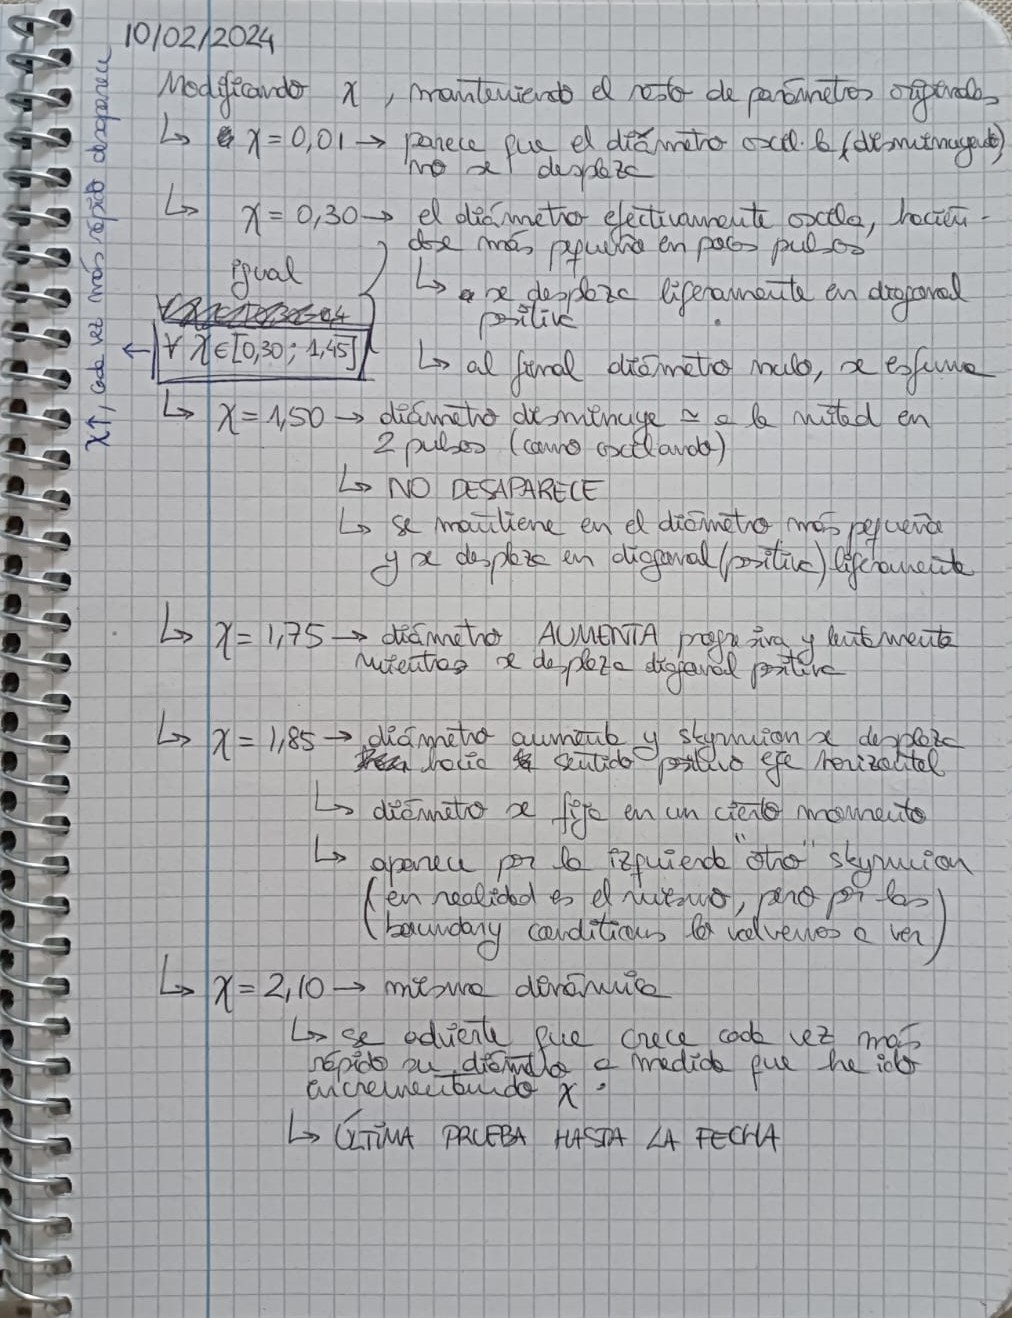 10/02/2024
Modificando χ, manteniendo el resto de parámetros originales
↳ χ = 0,01 → parece que el diámetro oscila (disminuyendo)
no se desplaza
↳ χ = 0,30 → el diámetro efectivamente oscila, hacién-
dose más pequeño en pocos pulsos
igual
↳ se desplaza ligeramente en diagonal
positiva
← ∀ χ ∈ [0,30 ; 1,45]
↳ al final diámetro nulo, se esfuma
χ↑, cada vez más rápido desaparece
↳ χ = 1,50 → diámetro disminuye ≃ a la mitad en
2 pulsos (como oscilando)
↳ NO DESAPARECE
↳ se mantiene en el diámetro más pequeño
y se desplaza en diagonal (positiva) ligeramente
↳ χ = 1,75 → diámetro AUMENTA progresiva y lentamente
mientras se desplaza diagonal positiva
↳ χ = 1,85 → diámetro aumenta y skyrmion se desplaza
hacia sentido positivo eje horizontal
↳ diámetro se fija en un cierto momento
↳ aparece por la izquierda "otro" skyrmion
(en realidad es el mismo, pero por las
boundary conditions lo volvemos a ver)
↳ χ = 2,10 → misma dinámica
↳ se advierte que crece cada vez más
rápido su diámetro a medida que he ido
incrementando χ.
↳ ÚLTIMA PRUEBA HASTA LA FECHA